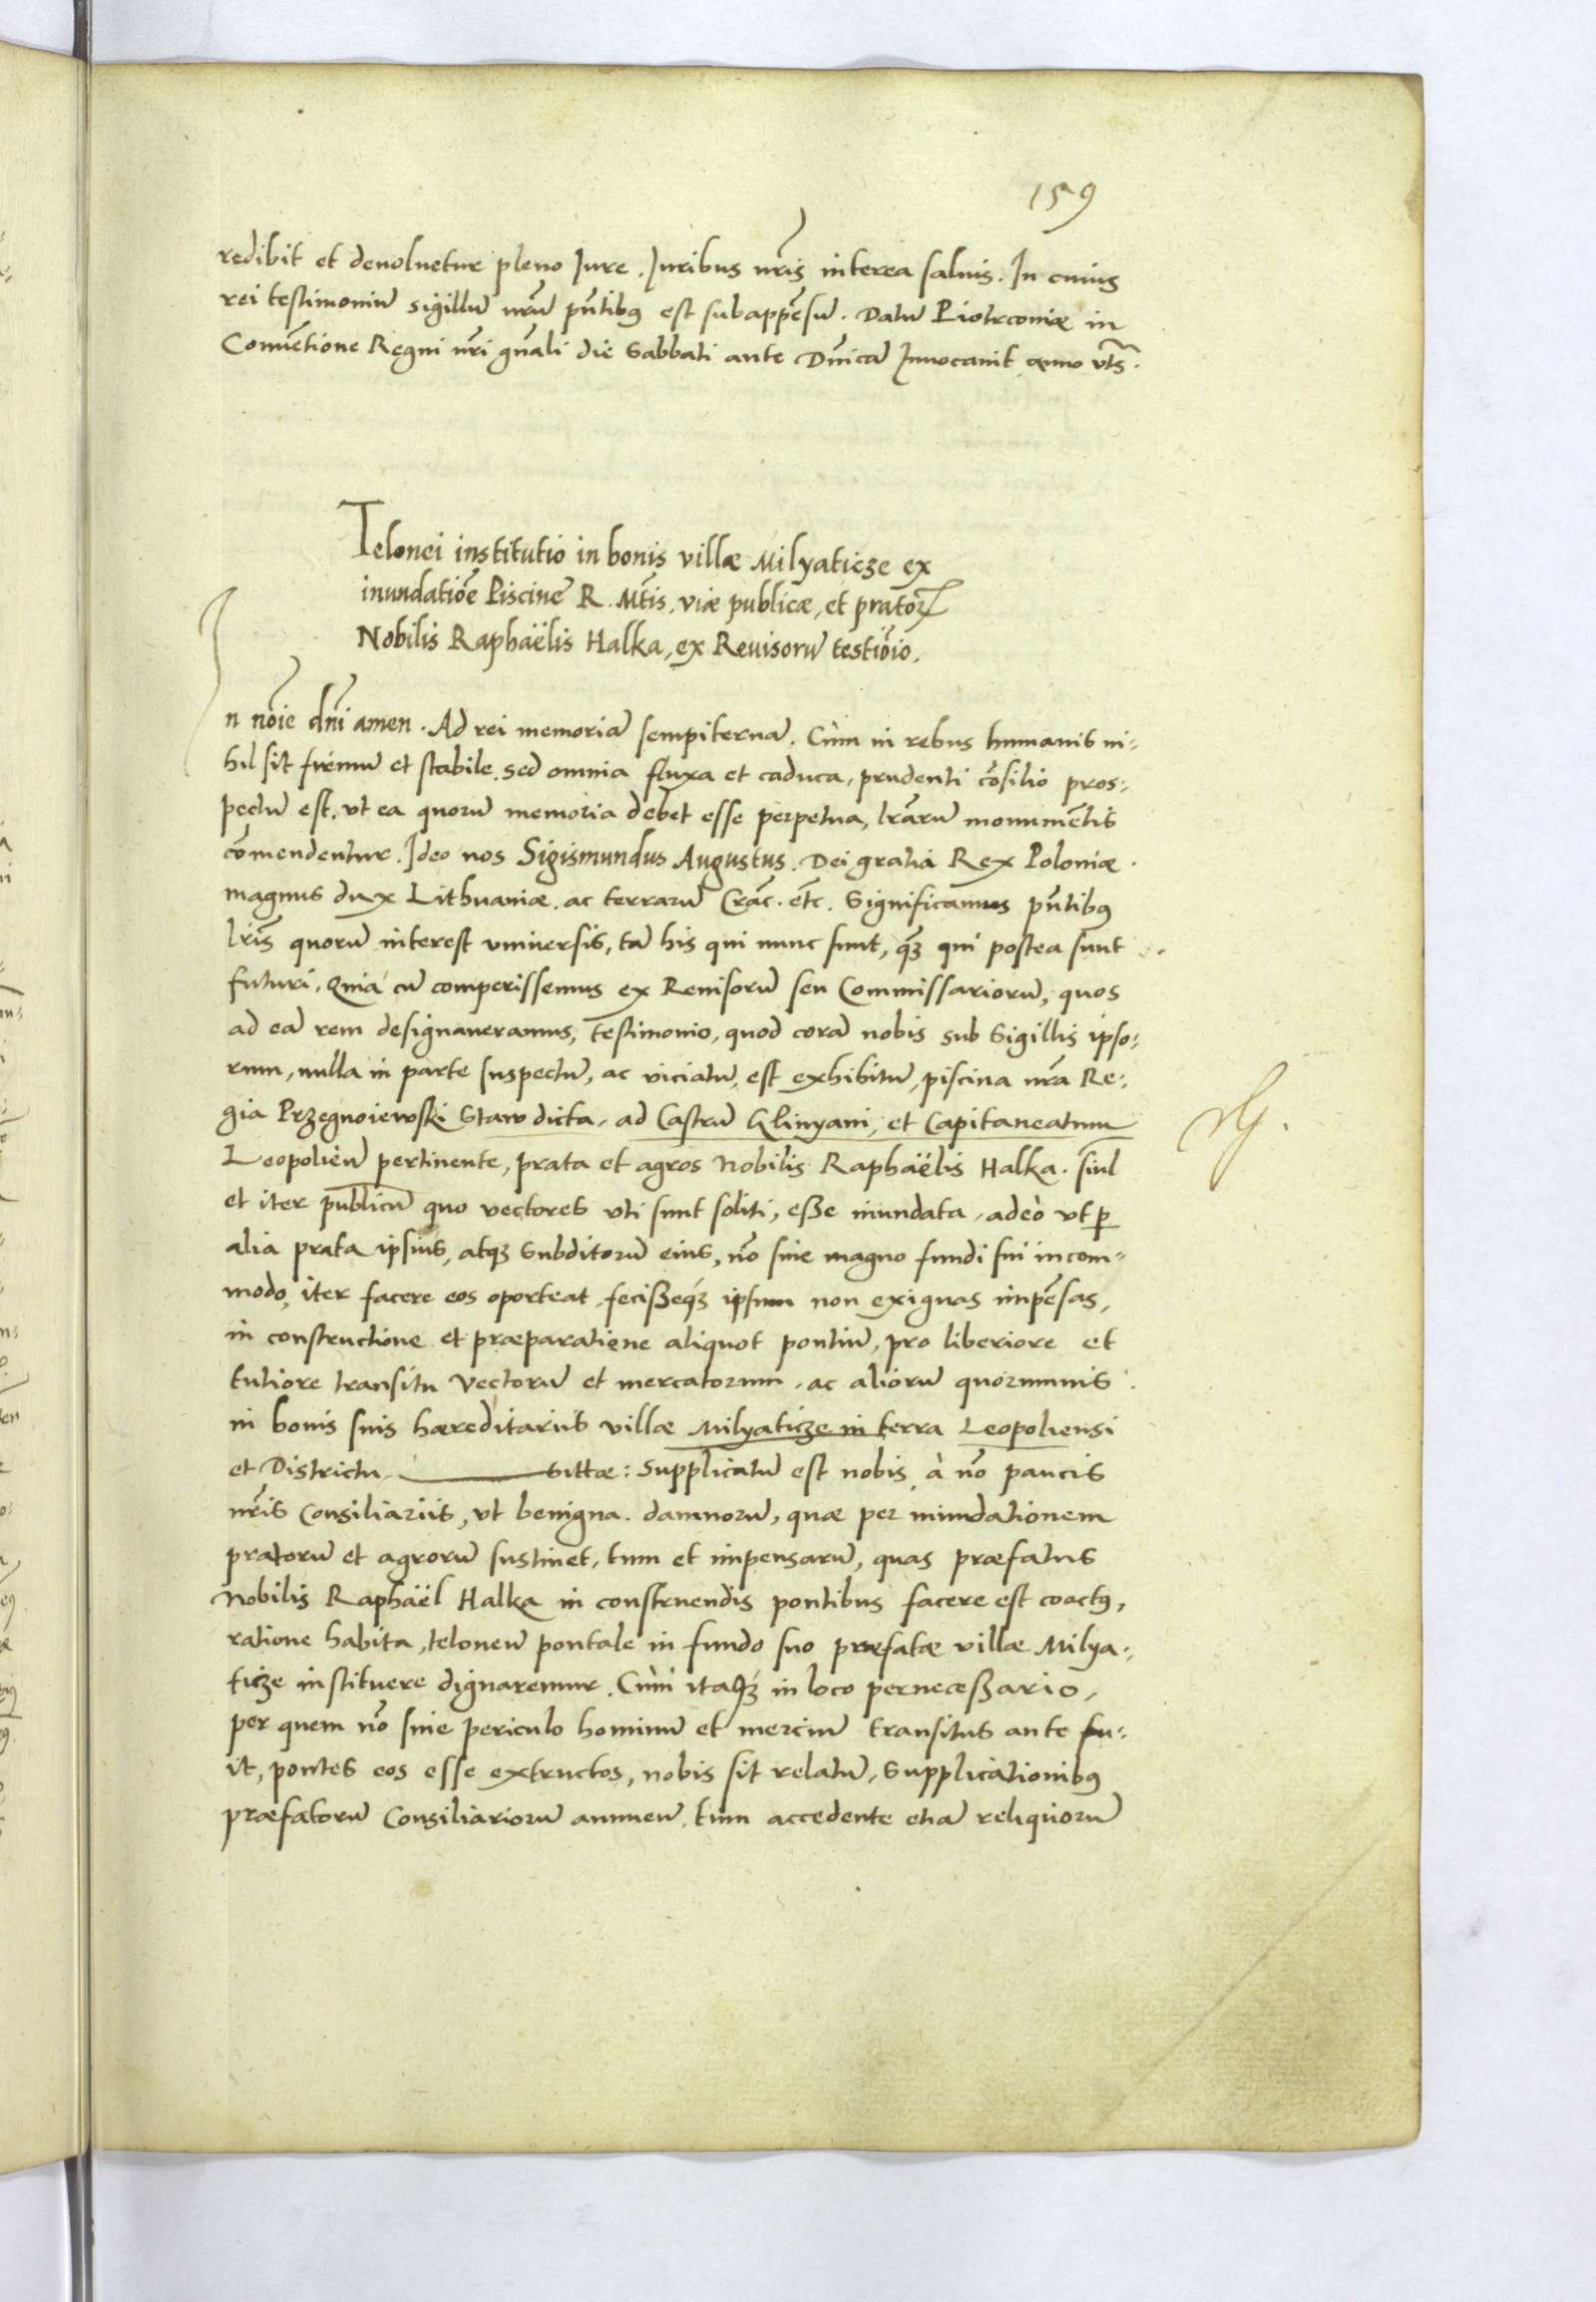 159
redibit et deuoluetur pleno Jure. Juribus nr̄is interea saluis. In cuius
rei testimoniū sigillū nr̄ū pn̄tibus est subappēsū. Datū Piotrconiæ in
Conuētione Regni nr̄i gn̄ali die Sabbati ante Dn̄icā Inuocauit anno vts̄.
Telonei institutio in bonis villæ Milyaticze ex
inundatiōe Piscinē R. Mtis. viæ publicæ, et pratorꝝ
Nobilis Raphaëlis Halka, ex Reuisorū testiōio.
In nōie dn̄i amen. Ad rei memoriā sempiternā. Cùm in rebus humanis ni-
hil sit firmū et stabile, sed omnia fluxa et caduca, prudenti cōsilio pros-
pectū est, vt ea quorū memoria debet esse perpetua, lr̄arū monumētis
cōmendentur. Ideo nos Sigismundus Augustus. Dei gratia Rex Poloniæ.
magnus dux Lithuaniæ. ac terrarū Crac̄. etc̄. Significamus pn̄tibus
lr̄is quorū interest vniuersis, tā his qui nunc sunt, q̄ꝫ qui postea sunt
futuri, Quia cū comperissemus ex Reuisorū seu Commissariorū, quos
ad eā rem designaueramus, testimonio, quod corā nobis sub Sigillis ipso-
rum, nulla in parte suspectū, ac viciatū, est exhibitū, piscina nr̄a Re-
gia Przegnoiewski Staw dicta, ad Castrū Glinyani, et Capitaneatum
Leopolien̄ pertinente, prata et agros Nobilis Raphaëlis Halka. sim̄l
et iter publicū quo vectores vti sunt soliti, esse inundata, adeò vt ꝑ
alia prata ipsius, atqꝫ Subditorū eius, nō sine magno fundi sui incom-
modo, iter facere eos oporteat, fecisseqꝫ ipsum non exiguas impēsas,
in constructione et præparatione aliquot pontiū, pro liberiore et
tutiore transitu Vectorū et mercatorum, ac aliorū quorumuis
in bonis suis hæreditariis villæ Milyaticze in terra Leopoliensi
et Districtu ——— Sittæ: Supplicatū est nobis, à nō paucis
nr̄is Consiliariis, vt benigna. damnorū, quæ per inundationem
pratorū et agrorū sustinet, tum et impensarū, quas præfatus
Nobilis Raphaël Halka in construendis pontibus facere est coactus,
ratione habita, teloneū pontale in fundo suo præfatæ villæ Milya-
ticze instituere dignaremur. Cùm itaqꝫ in loco pernecessario,
per quem nō sine periculo hominū et merciū transitus ante fu-
it, pontes eos esse extructos, nobis sit relatū, Supplicationibus
præfatorū Consiliariorū annuen̄. tum accedente etiā reliquorū